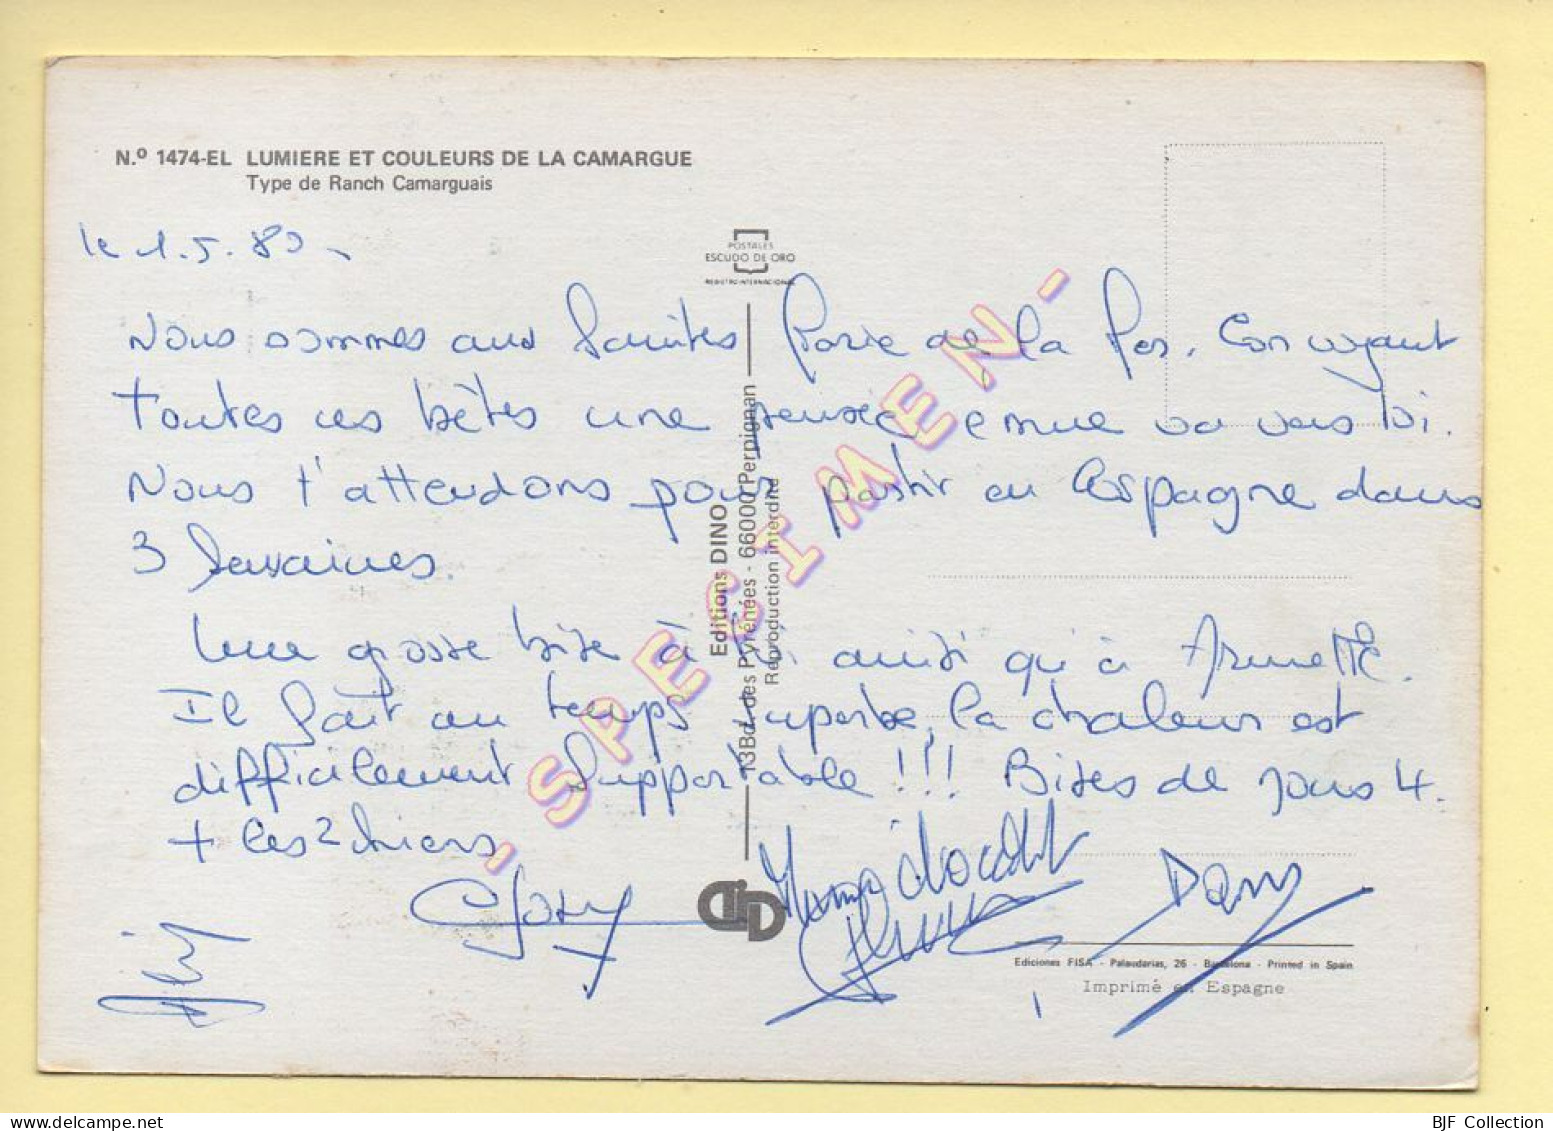 N.º 1474-EL LUMIERE ET COULEURS DE LA CAMARGUE
Type de Ranch Camarguais
le 1.5.80
POSTALES
ESCUDO DE ORO
REGISTRO INTERNACIONAL
Nous sommes aux Saintes Marie de la Mer. En voyant
toutes ces bêtes une pensée émue va vers toi.
Nous t'attendons pour partir en Espagne dans
3 semaines.
Une grosse bise à toi ainsi qu'à Annette.
Il fait un temps superbe, la chaleur est
difficilement supportable !!! Bises de nous 4.
+ les 2 chiens
Editions DINO
13Bd. des Pyrénées - 66000 Perpignan
Reproduction interdite
- SPECIMEN -
DiD
Dany
Ediciones FISA - Palaudarias, 26 - Barcelona - Printed in Spain
Imprimé en Espagne
BJF Collection